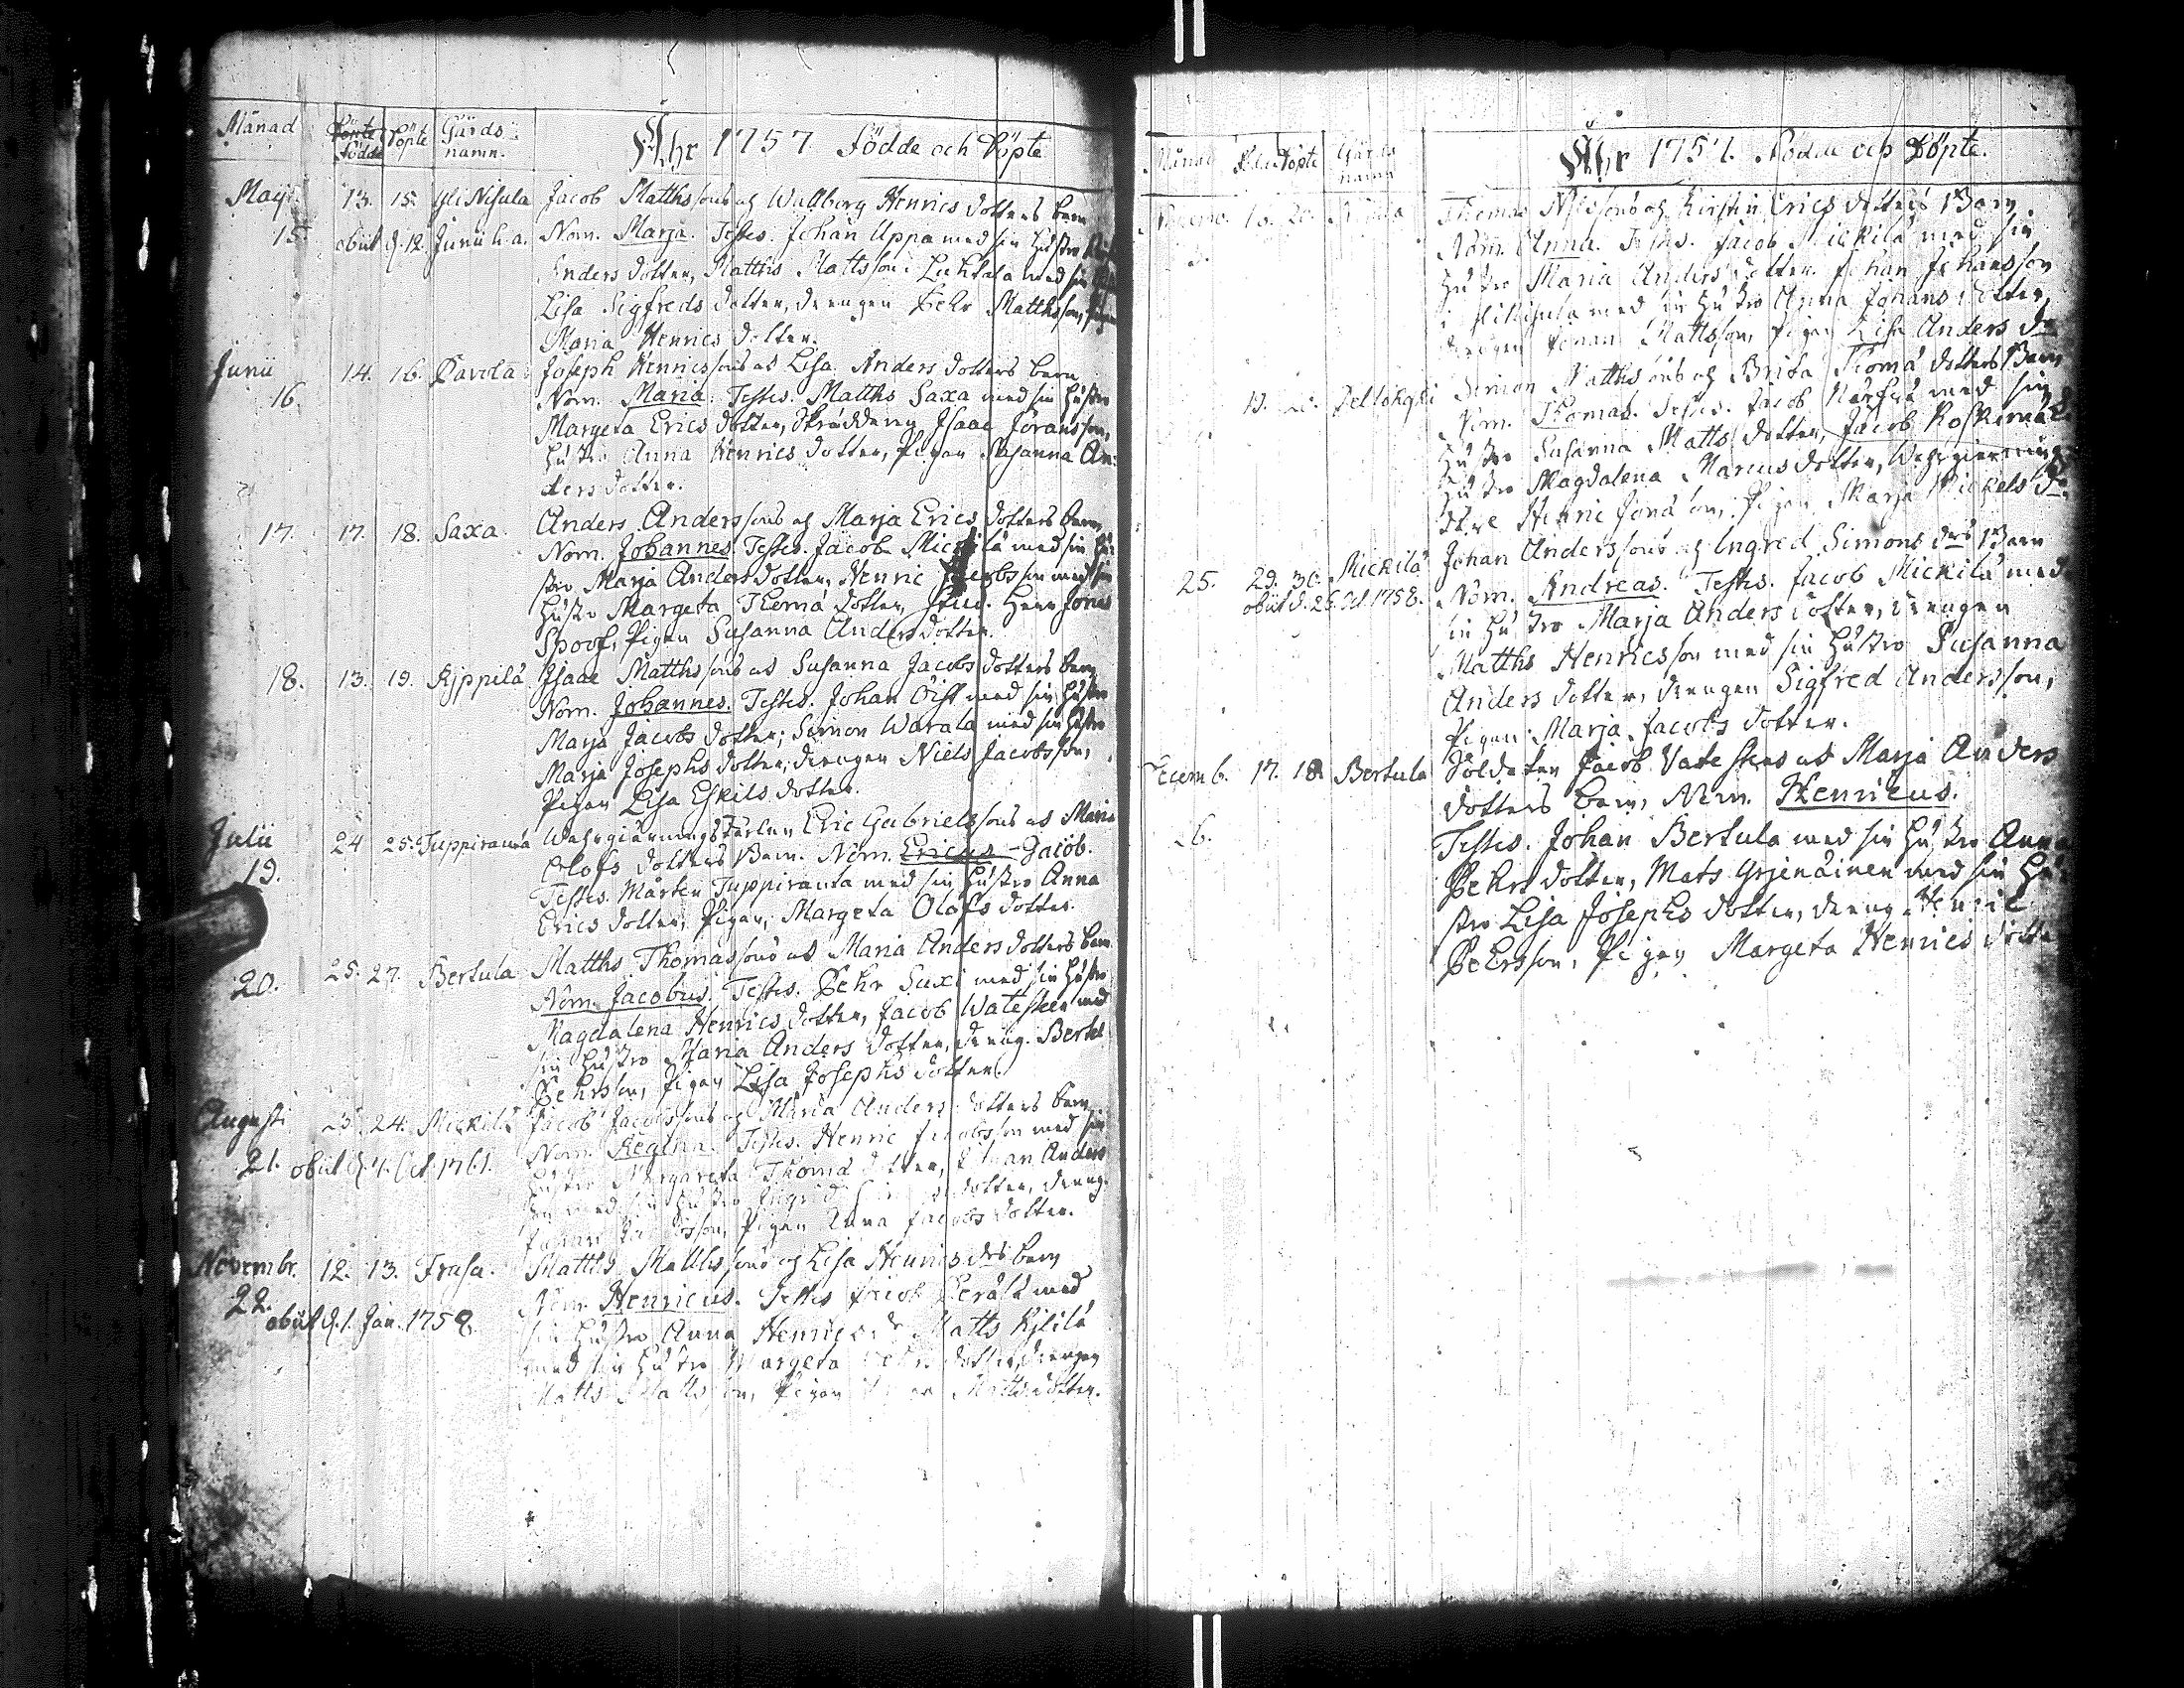 Månad Födde Döpte Gårds namn. Åhr 1757 Födde och Döpte
Maji 13. 15. Yli Nisula Jacob Matthssons och Wallborg Henrics dotters barn
15. obiit d. 12. Junii h.a. Nom. Marja. Testes. Johan Uppa med sin hustro
Anders dotter, Matths Mattsson Luhtala med sin
Lisa Sigfreds dotter, drengen Pehr Matthsson,
Maria Henrics dotter.
Junii 14. 16. Pavola Joseph Henricssons och Lisa Anders dotters barn
16. Nom. Maria. Testes. Matths Saxa med sin hustro
Margeta Erics dotter, Skräddaren Isaac Jöransson,
hustro Anna Henrics dotter, Pigan Susanna An-
ders dotter.
17. 17. 18. Saxa. Anders Anderssons och Marja Erics dotters barn,
Nom. Johannes. Testes. Jacob Mickilä med sin hu-
stro Marja Anders dotter, Henric Jacobsson med sin
hustro Margeta Thomä dotter, Stud. Herr Jonas
Spoof, Pigan Susanna Anders dotter.
18. 13. 19. Kyppilä Isaac Matthssons och Susanna Jacobs dotters barn
Nom. Johannes. Testes. Johan Öist med sin hustro
Marja Jacobs dotter; Simon Warala med sin hustro
Marja Josephs dotter, drengen Niels Jacobsson,
Pigan Lisa Eskils dotter.
Julii 24 25. Tuppiranta Wahrgierningskarlen Eric Gabrielssons och Maria
19. Olofs dotters Barn. Nom. Ericus - Jacob.
Testes. Mårten Tuppiranta med sin hustro Anna
Erics dotter, Pigan, Margeta Olofs dotter.
20. 25. 27. Bertula Matths Thomassons och Maria Anders dotters barn
Nom. Jacobus. Testes. Pehr Saxi med sin hustro
Magdalena Henrics dotter, Jacob Watesten med
sin hustro Maria Anders dotter, dreng. Bertel
Pehrsson, Pigan Lisa Josephs dotter.
Augusti 23. 24. Mickilä Jacob Jacobssons och Maria Anders dotters barn
21. obiit d. 4. Oct. 1761. Nom. Regina. Testes. Henric Jacobsson med sin
hustro Margareta Thomä dotter, Johan Anders
son med sin hustro Ingrid dotter, dreng.
Johan Jacobsson, Pigan Anna Jacobs dotter.
Novembr. 12. 13. Frusa. Matths Matthssons och Lisa Henrics drs barn
22. Nom. Henricus. Testes Jacob Perälä med
obiit d. 1. Jan. 1758. sin hustro Anna Henrics dr Matts Kylilä
med sin hustro Margeta dotter, drengen
Matts Mattsson, Pigan Matts dotter.
Månad Födde Döpte Gårds namn Åhr 1757. Födde och Döpte.
Thomas och Kirstin Erics dotters Barn.
Nom. Anna. Testes. Jacob Mickilä med sin
hustro Maria Anders dotter. Johan Johansson
i med sin hustro Anna Johans dotter,
drengen Johan Mattsson, Pigan Lisa Anders dr
19. 20. Simon Matthssons och Brita Thomä dotters Barn
Nom. Thomas. Testes. Jacob med sin
hustro Susanna Matts dotter, Jacob Koskemäki
hustro Magdalena Marcus dotter,
Henric Pigan Marja Mickels dr.
25. 29. 30. Mickilä Johan Anderssons och Ingred Simons drs Barn
obiit d. 25. Oct. 1758. Nom. Andreas. Testes. Jacob Mickilä med
sin hustro Marja Anders dotter, drengen
Matths Henricsson med sin hustro Susanna
Anders dotter, drengen Sigfred Andersson,
Pigan Marja Jacobs dotter.
Decemb. 17. 18. Bertula Soldaten Jacob Vatestens och Marja Anders
dotters barn, Nom. Henricus.
26. Testes. Johan Bertula med sin hustro Anna
Pehrs dotter, Mats Yrjenäinen med sin hu-
stro Lisa Josephs dotter, dreng. Henric
Pehrsson, Pigan Margeta Henrics dotter